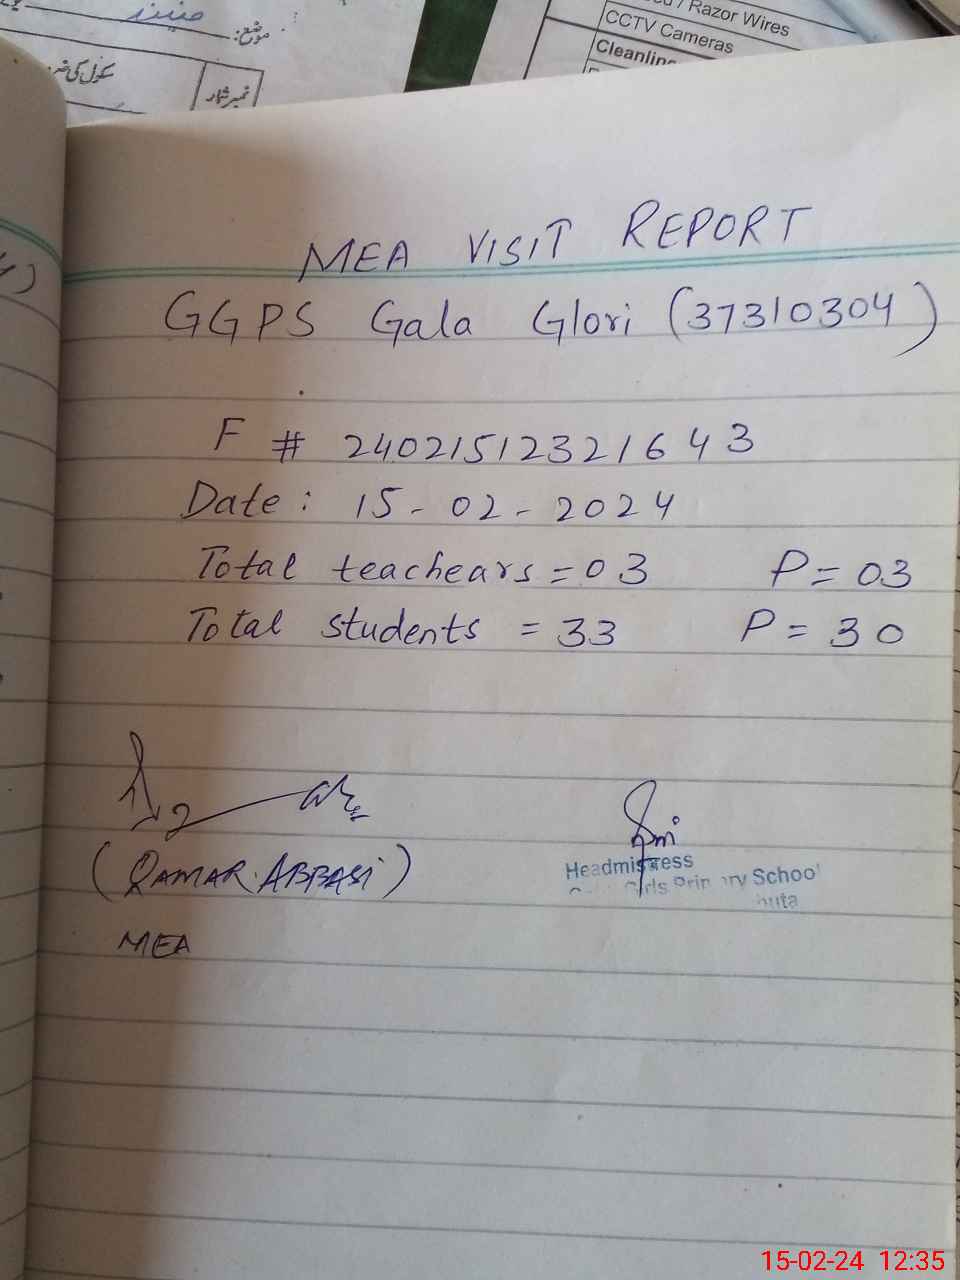 موضع:
سکول کی
نمبر شمار
/ Razor Wires
CCTV Cameras
MEA VISIT REPORT
GGPS Gala Glori (37310304)
F # 24021512321643
Date: 15-02-2024
Total teachears = 03 P = 03
Total students = 33 P = 30
(QAMAR ABBASI)
MEA
Headmistress
Girls Primary School
15-02-24 12:35